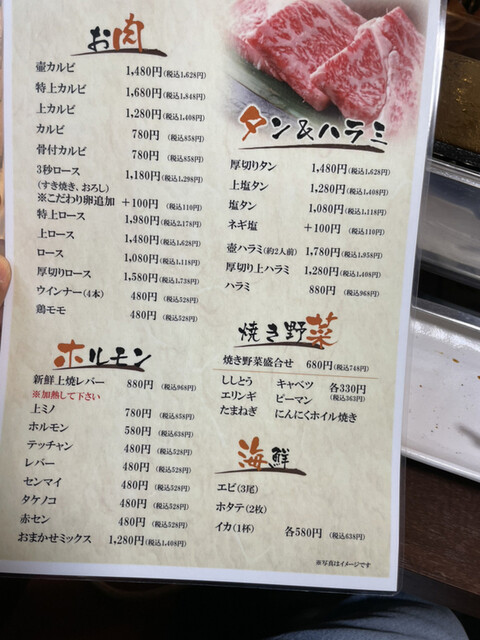 お肉
壺カルビ 1,480円(税込1,628円)
特上カルビ 1,680円(税込1,848円)
上カルビ 1,280円(税込1,408円)
カルビ 780円 (税込858円)
骨付カルビ 780円 (税込858円)
3秒ロース 1,180円(税込1,298円)
(すき焼き、おろし)
※こだわり卵追加 +100円 (税込110円)
特上ロース 1,980円(税込2,178円)
上ロース 1,480円(税込1,628円)
ロース 1,080円(税込1,118円)
厚切りロース 1,580円(税込1,738円)
ウインナー(4本) 480円 (税込528円)
鶏モモ 480円 (税込528円)
ホルモン
新鮮上焼レバー 880円 (税込968円)
※加熱して下さい
上ミノ 780円 (税込858円)
ホルモン 580円 (税込638円)
テッチャン 480円 (税込528円)
レバー 480円 (税込528円)
センマイ 480円 (税込528円)
タケノコ 480円 (税込528円)
赤セン 480円 (税込528円)
おまかせミックス 1,280円(税込1,408円)
タン&ハラミ
厚切りタン 1,480円(税込1,628円)
上塩タン 1,280円(税込1,408円)
塩タン 1,080円(税込1,118円)
ネギ塩 +100円 (税込110円)
壺ハラミ(約2人前) 1,780円(税込1,958円)
厚切り上ハラミ 1,280円(税込1,408円)
ハラミ 880円 (税込968円)
焼き野菜
焼き野菜盛合せ 680円(税込748円)
ししとう キャベツ 各330円
エリンギ ピーマン (税込363円)
たまねぎ にんにくホイル焼き
海鮮
エビ(3尾)
ホタテ(2枚)
イカ(1杯) 各580円 (税込638円)
※写真はイメージです